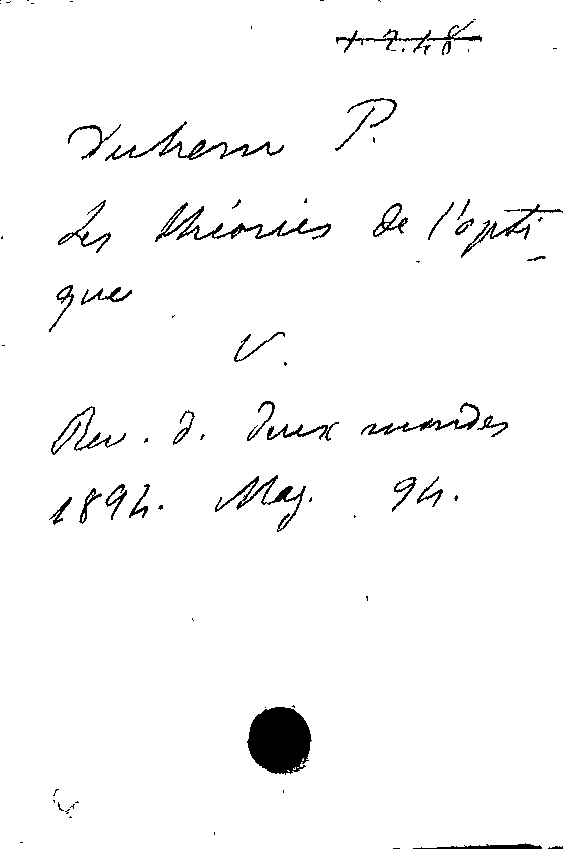 Duhem P.
Les théories de l'opti-
que
V.
Rev. d. deux mondes
1894. Maj. 94.